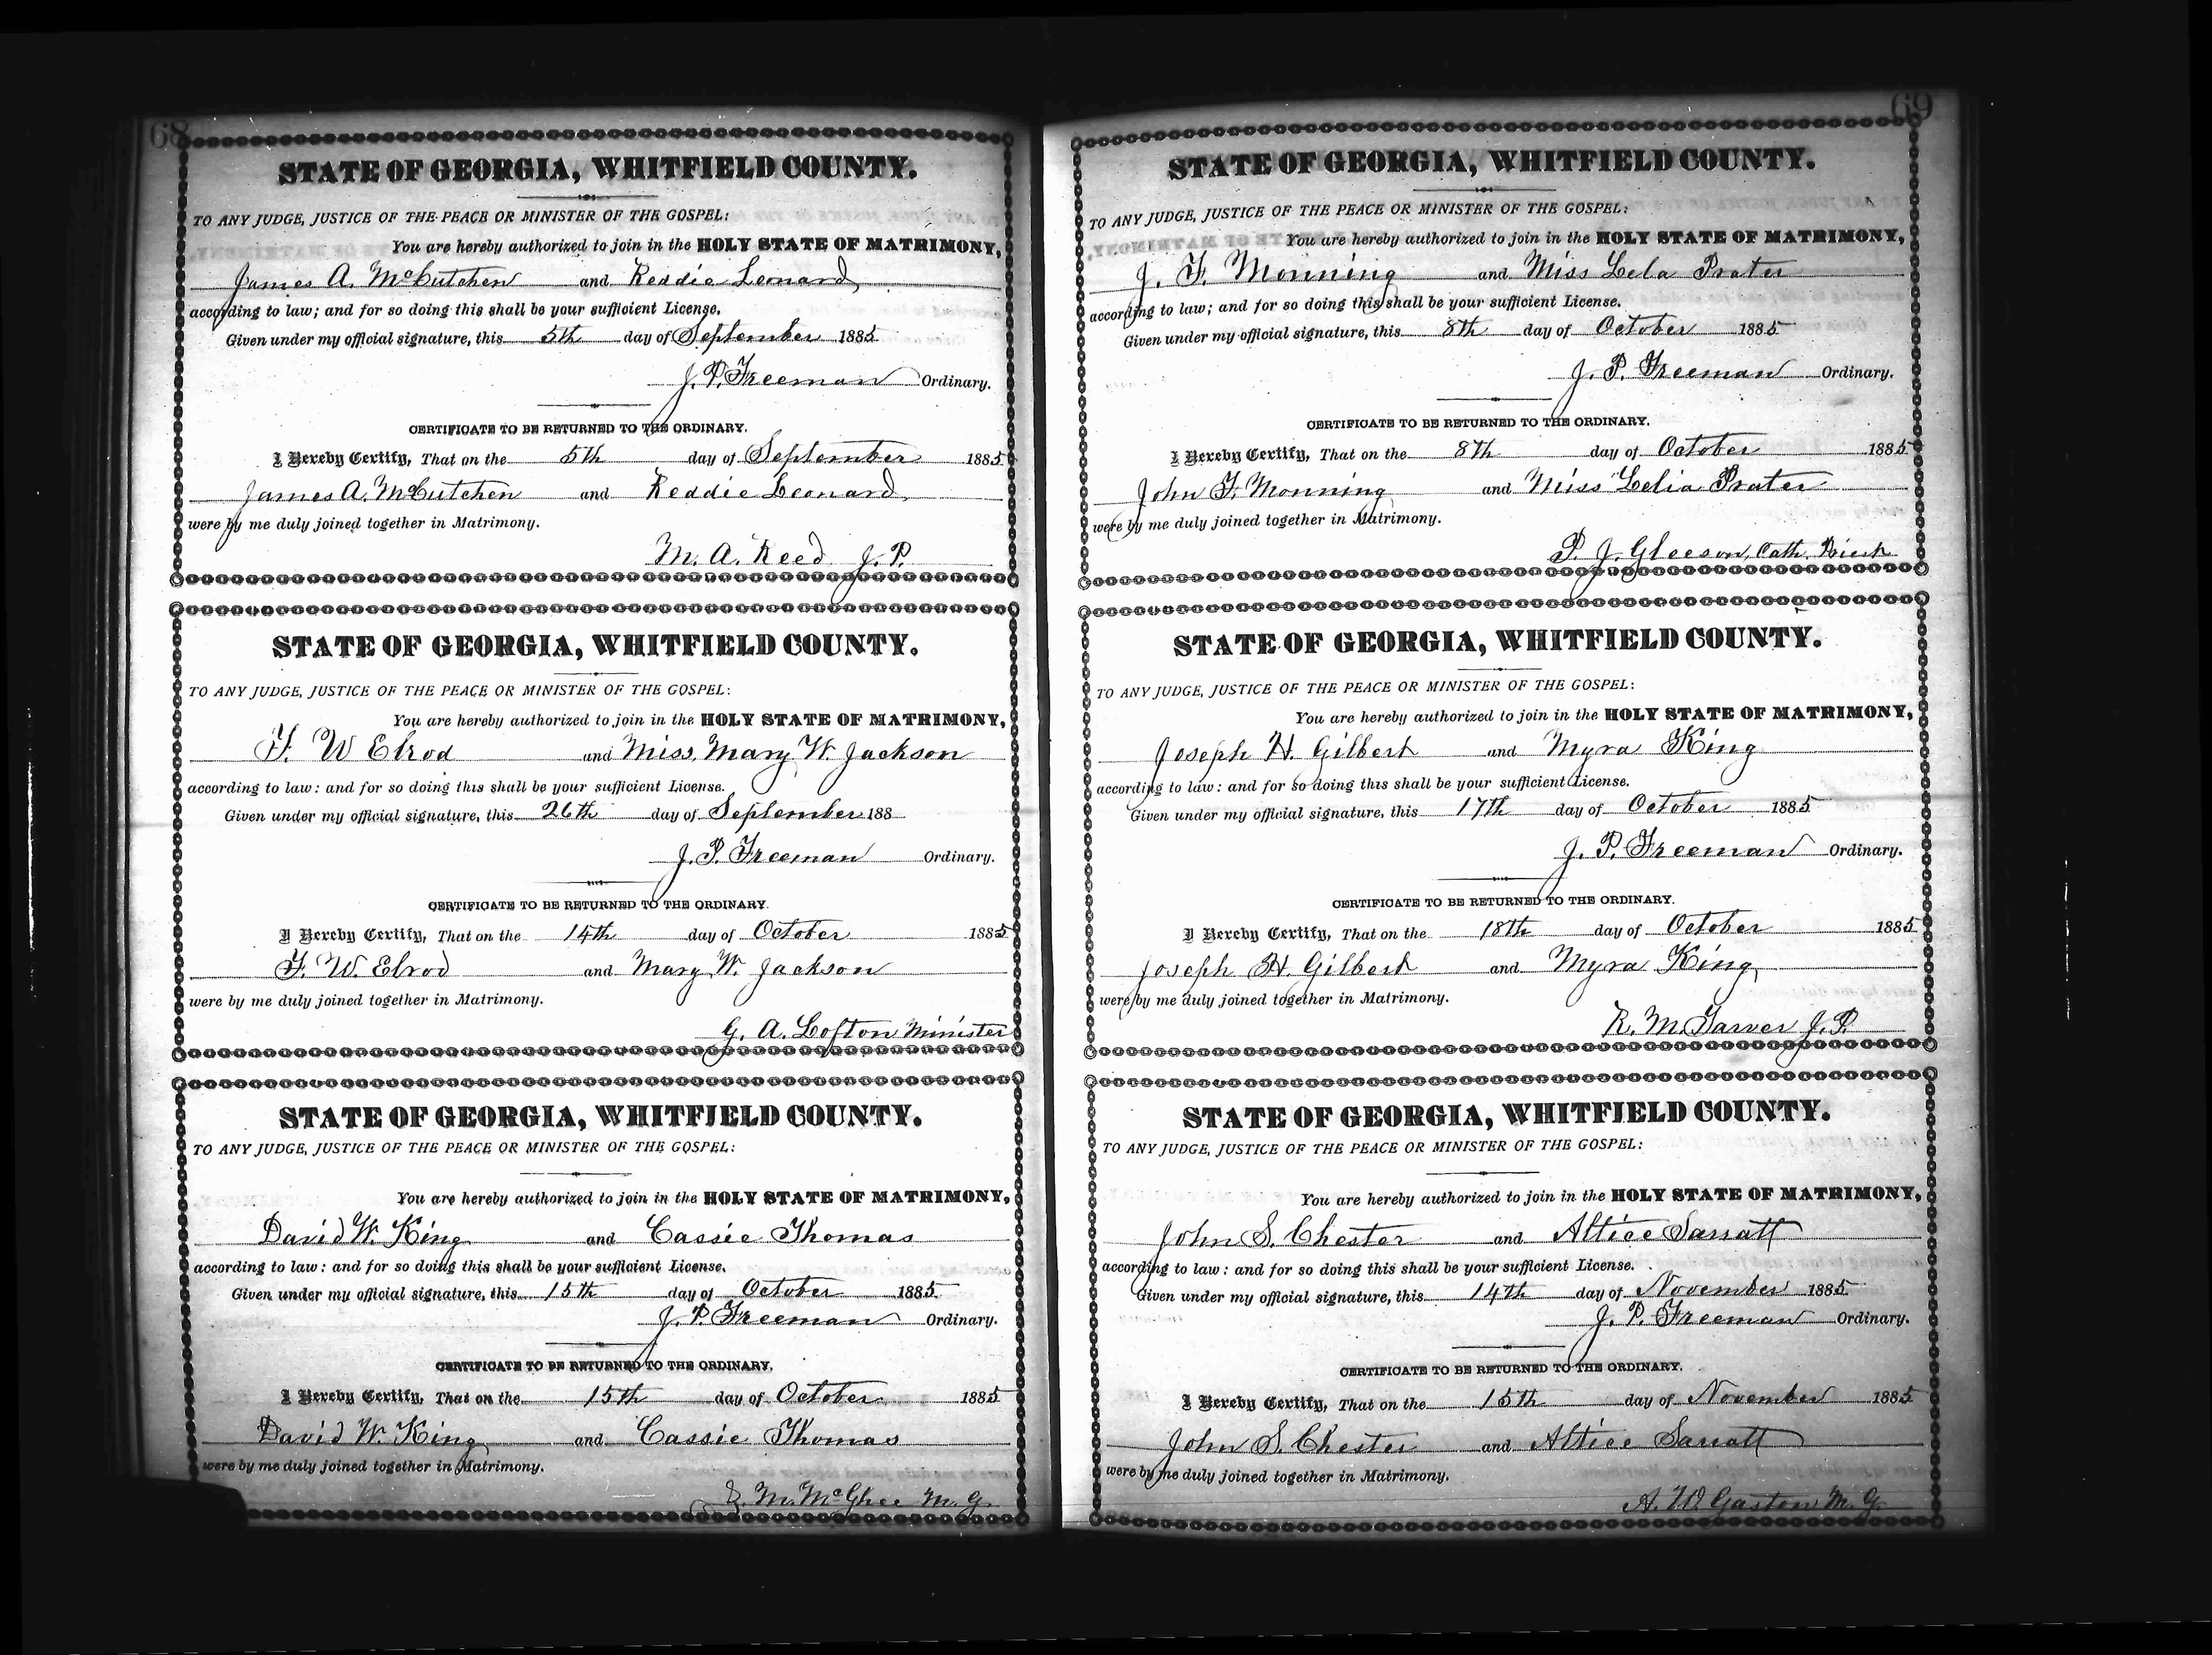 68
STATE OF GEORGIA, WHITFIELD COUNTY.
TO ANY JUDGE, JUSTICE OF THE PEACE OR MINISTER OF THE GOSPEL:
You are hereby authorized to join in the HOLY STATE OF MATRIMONY,
James A. McCutchen and Reddie Leonard,
according to law; and for so doing this shall be your sufficient License.
Given under my official signature, this 5th day of September 1885
J. P. Freeman Ordinary.
CERTIFICATE TO BE RETURNED TO THE ORDINARY.
I Hereby Certify, That on the 5th day of September 1885
James A. McCutchen and Reddie Leonard,
were by me duly joined together in Matrimony.
M. A. Reed J. P.
STATE OF GEORGIA, WHITFIELD COUNTY.
TO ANY JUDGE, JUSTICE OF THE PEACE OR MINISTER OF THE GOSPEL:
You are hereby authorized to join in the HOLY STATE OF MATRIMONY,
F. W Elrod and Miss. Mary W. Jackson
according to law: and for so doing this shall be your sufficient License.
Given under my official signature, this 26th day of September 188
J. P. Freeman Ordinary.
CERTIFICATE TO BE RETURNED TO THE ORDINARY.
I Hereby Certify, That on the 14th day of October 1885
F. W. Elrod and Mary W. Jackson
were by me duly joined together in Matrimony.
G. A. Lofton Minister
STATE OF GEORGIA, WHITFIELD COUNTY.
TO ANY JUDGE, JUSTICE OF THE PEACE OR MINISTER OF THE GOSPEL:
You are hereby authorized to join in the HOLY STATE OF MATRIMONY,
David W. King and Cassie Thomas
according to law: and for so doing this shall be your sufficient License.
Given under my official signature, this 15th day of October 1885
J. P. Freeman Ordinary.
CERTIFICATE TO BE RETURNED TO THE ORDINARY.
I Hereby Certify, That on the 15th day of October 1885
David W. King and Cassie Thomas
were by me duly joined together in Matrimony.
M. McGhee M. G.
69
STATE OF GEORGIA, WHITFIELD COUNTY.
TO ANY JUDGE, JUSTICE OF THE PEACE OR MINISTER OF THE GOSPEL:
You are hereby authorized to join in the HOLY STATE OF MATRIMONY,
J. F. Monning and Miss Lela Prater
according to law; and for so doing this shall be your sufficient License.
Given under my official signature, this 8th day of October 1885
J. P. Freeman Ordinary.
CERTIFICATE TO BE RETURNED TO THE ORDINARY.
I Hereby Certify, That on the 8th day of October 1885
John F. Monning and Miss Lelia Prater
were by me duly joined together in Matrimony.
P. J. Gleeson, Cath. Priest
STATE OF GEORGIA, WHITFIELD COUNTY.
TO ANY JUDGE, JUSTICE OF THE PEACE OR MINISTER OF THE GOSPEL:
You are hereby authorized to join in the HOLY STATE OF MATRIMONY,
Joseph H. Gilbert and Myra King
according to law: and for so doing this shall be your sufficient License.
Given under my official signature, this 17th day of October 1885
J. P. Freeman Ordinary.
CERTIFICATE TO BE RETURNED TO THE ORDINARY.
I Hereby Certify, That on the 18th day of October 1885
Joseph H. Gilbert and Myra King,
were by me duly joined together in Matrimony.
R. M. Tarver J. P.
STATE OF GEORGIA, WHITFIELD COUNTY.
TO ANY JUDGE, JUSTICE OF THE PEACE OR MINISTER OF THE GOSPEL:
You are hereby authorized to join in the HOLY STATE OF MATRIMONY,
John S. Chester and Altice Sarratt
according to law: and for so doing this shall be your sufficient License.
Given under my official signature, this 14th day of November 1885
J. P. Freeman Ordinary.
CERTIFICATE TO BE RETURNED TO THE ORDINARY.
I Hereby Certify, That on the 15th day of November 1885
John S. Chester and Altice Sarratt
were by me duly joined together in Matrimony.
A. W. Gaston M. G.